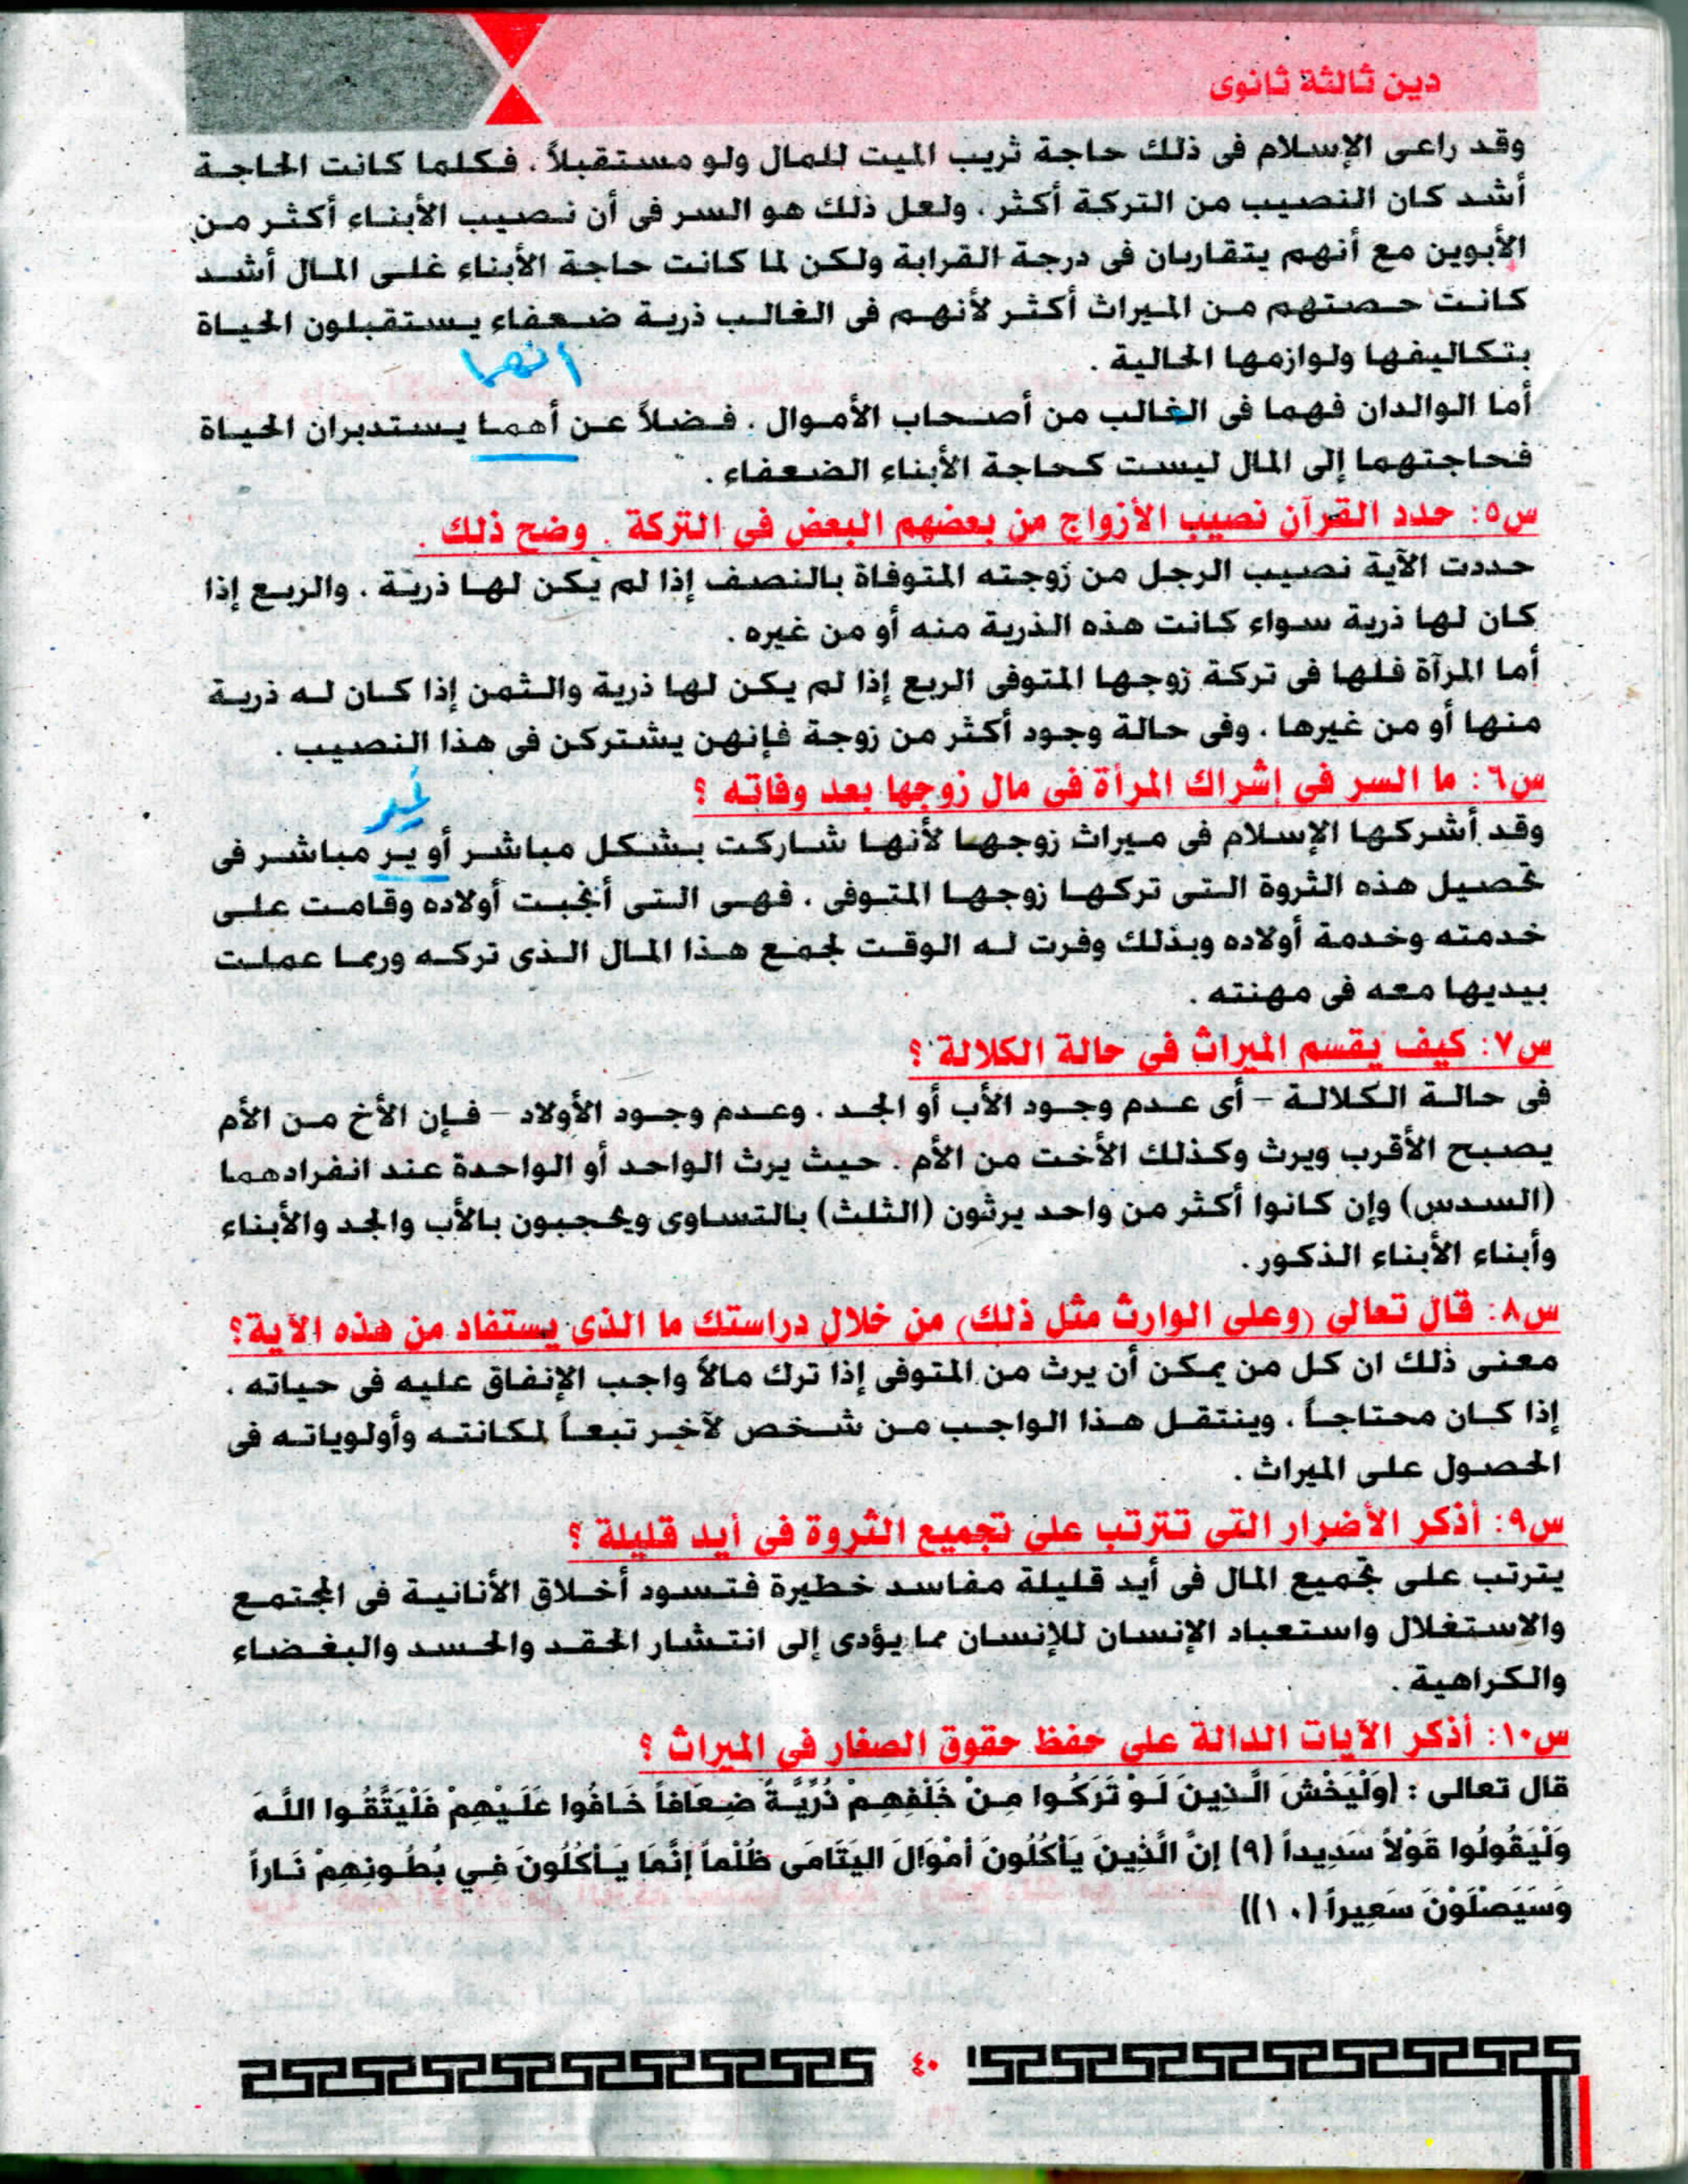 دين ثالثة ثانوى
وقد راعى الإسلام فى ذلك حاجة ثريب الميت للمال ولو مستقبلاً . فكلما كانت الحاجة
أشد كان النصيب من التركة أكثر . ولعل ذلك هو السر فى أن نصيب الأبناء أكثر من
الأبوين مع أنهم يتقاربان فى درجة القرابة ولكن لما كانت حاجة الأبناء غلى المال أشد
كانت حصتهم من الميراث أكثر لأنهم فى الغالب ذرية ضعفاء يستقبلون الحياة
بتكاليفها ولوازمها الحالية .
انهما
أما الوالدان فهما فى الغالب من أصحاب الأموال . فضلاً عن أهما يستدبران الحياة
فحاجتهما إلى المال ليست كحاجة الأبناء الضعفاء .
س٥: حدد القرآن نصيب الأزواج من بعضهم البعض فى التركة . وضح ذلك .
حددت الآية نصيب الرجل من زوجته المتوفاة بالنصف إذا لم يكن لها ذرية . والربع إذا
كان لها ذرية سواء كانت هذه الذرية منه أو من غيره .
أما المرآة فلها فى تركة زوجها المتوفى الربع إذا لم يكن لها ذرية والثمن إذا كان له ذرية
منها أو من غيرها . وفى حالة وجود أكثر من زوجة فإنهن يشتركن فى هذا النصيب .
س٦: ما السر فى إشراك المرأة فى مال زوجها بعد وفاته ؟
غير
وقد أشركها الإسلام فى ميراث زوجها لأنها شاركت بشكل مباشر أو ير مباشر فى
تحصيل هذه الثروة التى تركها زوجها المتوفى . فهى التى أنجبت أولاده وقامت على
خدمته وخدمة أولاده وبذلك وفرت له الوقت لجمع هذا المال الذى تركه وربما عملت
بيديها معه فى مهنته .
س٧: كيف يقسم الميراث فى حالة الكلالة ؟
فى حالة الكلالة – أى عدم وجود الأب أو الجد . وعدم وجود الأولاد – فإن الأخ من الأم
يصبح الأقرب ويرث وكذلك الأخت من الأم . حيث يرث الواحد أو الواحدة عند انفرادهما
(السدس) وإن كانوا أكثر من واحد يرثون (الثلث) بالتساوى ويحجبون بالأب والجد والأبناء
وأبناء الأبناء الذكور .
س٨: قال تعالى (وعلى الوارث مثل ذلك) من خلال دراستك ما الذى يستفاد من هذه الآية؟
معنى ذلك ان كل من يمكن أن يرث من المتوفى إذا ترك مالاً واجب الإنفاق عليه فى حياته .
إذا كان محتاجاً . وينتقل هذا الواجب من شخص لآخر تبعاً لمكانته وأولوياته فى
الحصول على الميراث .
س٩: أذكر الأضرار التى تترتب على تجميع الثروة فى أيد قليلة ؟
يترتب على تجميع المال فى أيد قليلة مفاسد خطيرة فتسود أخلاق الأنانية فى المجتمع
والاستغلال واستعباد الإنسان للإنسان مما يؤدى إلى انتشار الحقد والحسد والبغضاء
والكراهية .
س١٠: أذكر الآيات الدالة على حفظ حقوق الصغار فى الميراث ؟
قال تعالى : (وَلْيَخْشَ الَّذِينَ لَوْ تَرَكُوا مِنْ خَلْفِهِمْ ذُرِّيَّةً ضِعَافاً خَافُوا عَلَيْهِمْ فَلْيَتَّقُوا اللَّهَ
وَلْيَقُولُوا قَوْلاً سَدِيداً (٩) إِنَّ الَّذِينَ يَأْكُلُونَ أَمْوَالَ اليَتَامَى ظُلْماً إِنَّمَا يَأْكُلُونَ فِي بُطُونِهِمْ نَاراً
وَسَيَصْلَوْنَ سَعِيراً (١٠))
٤٠